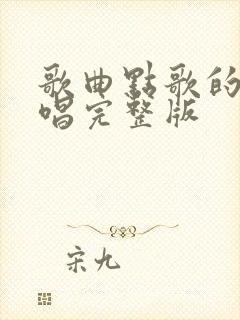 歌曲點歌的
唱完整版
宋九